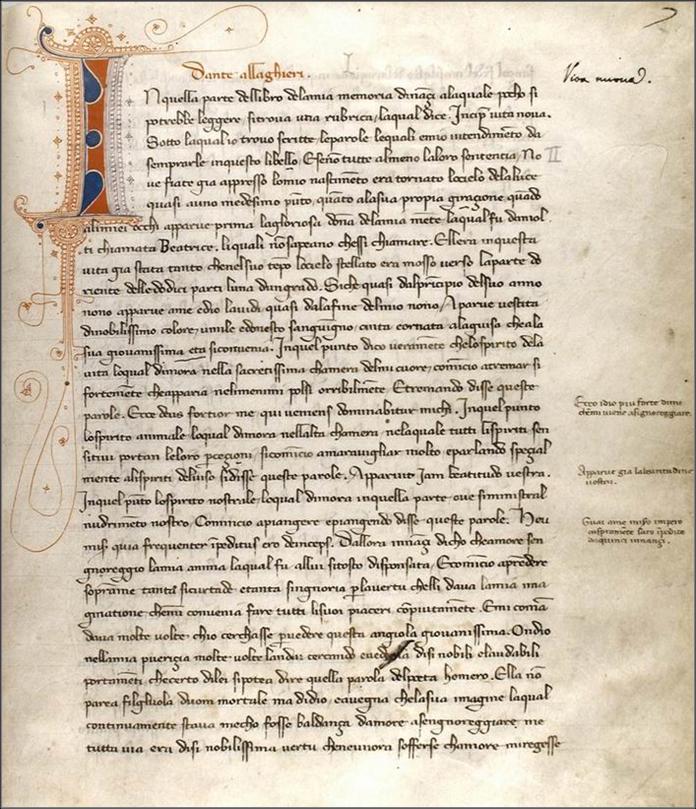 Dante allaghieri.
Vita nuova.
Nquella parte dellibro delamia memoria dināçi alaquale pocho si
potrebbe leggere, sitrova una rubrica, laqual dice. Incip̄ vita nova.
Sotto laqual io trovo scritte, leparole lequali emio intendimēto da
semprarle inquesto libello, Eseñ tutte almeno laloro sententia, No
II
ve fiate gia appresso lomio nascimēto era tornato locielo delaluce
quasi auno medesimo pūto, quāto alasua propia giratione, quādo
alimiei occhi apparve prima lagloriosa dōna delamia mēte laqual fu damol
ti chiamata Beatrice. liquali nōsapeano chessi chiamare. Ellera inquesta
vita gia stata tanto chenelsuo tēpo locielo stellato era mosso verso laparte do
riente delledodici parti luna dungrado. Sichē quasi dalprīcipio delsuo anno
nono apparve ame edio lavidi, quasi dalafine delmio nono, Aparve vestita
dinobilissimo colore, umile edonesto sanguigno, cinta eornata alaguisa cheala
sua giovanissima eta siconvenia. Inquel punto dico veramēte chelospirito dela
vita loqual dimora nella sacretissima chamera delmi cuore, comīcio atremar si
fortemēte cheapparia nelimenimi polsi orribilmēte. Etremando disse queste
parole. Ecce deus fortior me, qui veniens dominabitur michi. Inquel punto
lospirito animale loqual dimora nellalta chamera, nelaquale tutti lispiriti sen
sitivi portan leloro p̄ceçioni, sicomīcio amaravigliar molto, eparlando spetial
mente alispiriti delviso, sidisse queste parole. Apparuit Jam beatitudo vestra.
Inquel pūto lospirito nostrale, loqual dimora inquella parte, ove siministral
nudrimēto nostro, Comincio apiangere, epiangendo disse queste parole. Heu
misˀ quia frequenter īpeditus ero deinceps. Dallora inнаçi dicho cheamore sen
gnoreggio lamia anima laqual fu allui sitosto disponsata, Ecomīcio ap̄ndere
sopramē tanta sicurtade, etanta singnoria p̄lavertu chelli dava lamia ima
ginatione chemi convenia fare tutti lisuoi piaceri cōpiutamēte. Emi comā
dava molte volte, chio cerchasse p̄vedere questa angiola giovanissima. Ondio
nellamia pueriçia molte volte landai cercando disi nobili elaudabili
portamēti, checerto dilei sipotea dire quella parola delpoeta homero. Ella nō
parea figluola duom mortale ma didio, eavegna chelasua imagine laqual
continuamente stava mecho fosse baldança damore asengnoreggiare me
tutta via era disi nobilissima vertu cheneunora sofferse chamore miregesse
Ecco idio piu forte dime
chēmi viene asignoreggiare.
Apparve gia labeatitudine
vostra.
Guai ame misˀo impero
cħspessamēte saro īpedito
daquinci innançi.